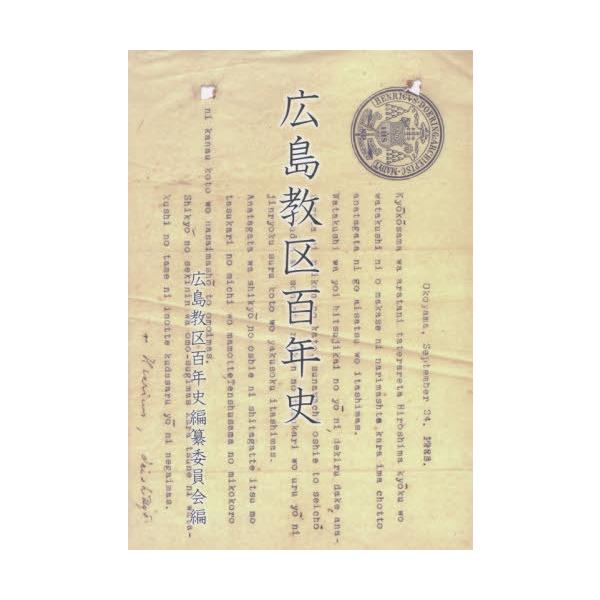 広島教区百年史
広島教区百年史編纂委員会編
HENRICVS·DOERING·ARCHIEPISC·MADYT
IHS
Okayama, September 24, 1923.
Kyōkōsama wa aratani taterareta Hiroshima kyōku wo
watakushi ni o makase ni narimashta kara ima chotto
anatagata ni go aisatsu wo itashimas.
Watakushi wa yoi hitsujikai no yō ni, dekiru dake, ana-
no koto sunawachi oshie to seichō
kari wo uru yō ni
jinryoku suru koto wo yakusoku itashimas.
Anatagata wa shikyō no oshie ni shitagatte itsu mo
tasukari no michi wo mamotte Tenshusama no mikokoro
ni kanau koto wo nasaimashō to omoimas.
Shikyō no sekinin wa omo-sugimas kara tsune ni wata-
kushi no tame ni inotte kudasaru yō ni negaimas.